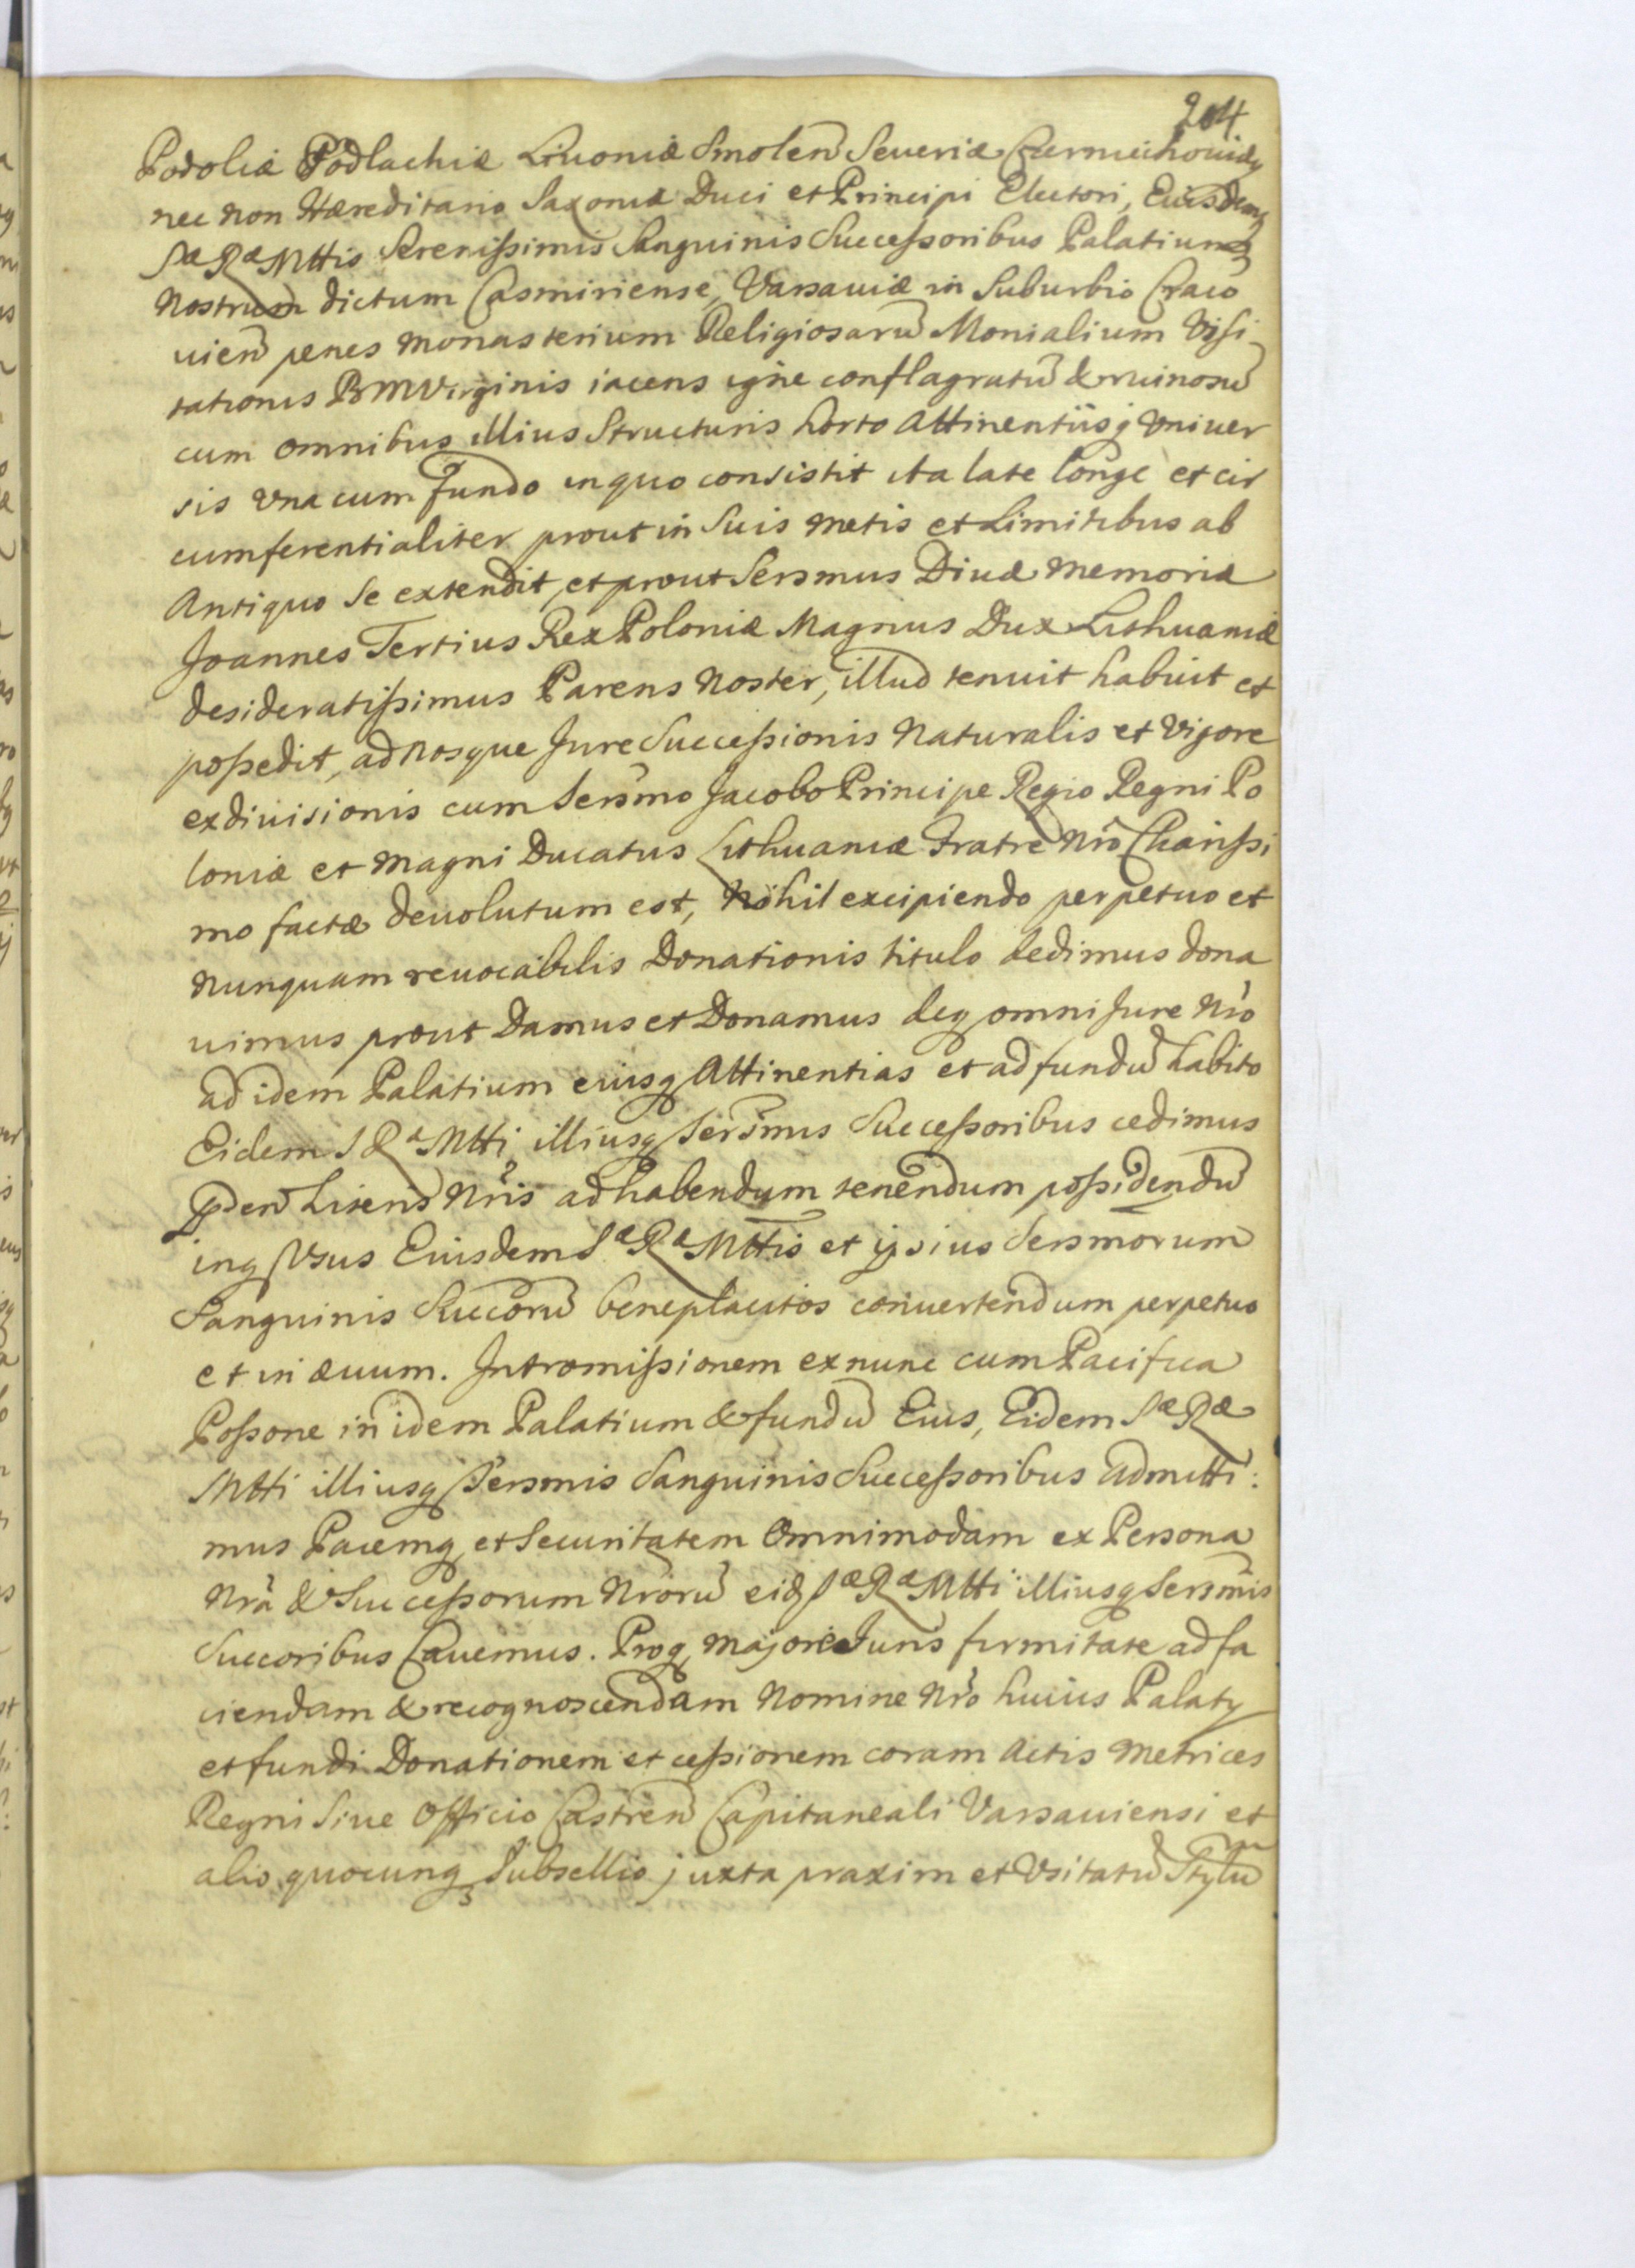 204
Podoliæ Podlachiæ Liuoniæ Smolen̄ Seueriæ Czerniechouiæq
nec non Hæreditario Saxoniæ Duci et Principi Electori, Eiusdemq
Sæ Ræ Mttis Serenißimis Sanguinis Succeßoribus Palatium
Nostrum dictum Casmiriense, Varsauiæ in Suburbio Craco
uien̄ penes Monasterium Religiosarū Monialium Visi-
tationis BMVirginis iacens igne conflagratū & ruinosū
cum omnibus illius Structuris horto Attinentiisq Vniuer
sis Vna cum Fundo in quo consistit ita late longè et cir
cumferentialiter prout in Suis Metis et Limitibus ab
Antiquo Se extendit, et prout Sersmus Diuæ Memoriæ
Joannes Tertius Rex Poloniæ Magnus Dux Lithuaniæ
desideratißimus Parens Noster, illud tenuit habuit et
poßedit, ad Nosque Jure Succeßionis Naturalis et Vigore
exdiuisionis cum Sersmo Jacobo Principe Regio Regni Po
loniæ et Magni Ducatus Lithuaniæ Fratre Nrō Charißi
mo factæ deuolutum est, Nihil excipiendo perpetuo et
Nunquam reuocabilis Donationis titulo dedimus dona
uimus prout Damus et Donamus deq omni Jure Nrō
ad idem Palatium eiusq Attinentias et ad fundū habito
Eidem S Ræ Mtti illiusq Sersmis Succeßoribus cedimus
Pden̄ Literis Nris ad habendum tenendum poßidendū
inq Vsus Eiusdem Sæ Ræ Mttis et ipsius Sersmorum
Sanguinis Succorū beneplacitos conuertendum perpetuo
et in æuum. Intromißionem ex nunc cum Pacifica
Poßone in idem Palatium & fundū Eius, Eidem Sæ Ræ
Mtti illiusq Sersmis Sanguinis Succeßoribus admitti:
mus Pacemq et Securitatem Omnimodam ex Persona
Nrā & Succeßorum Nrorū eid Sæ Ræ Mtti illiusq Sersmis
Succoribus Cauemus. Proq Majore Juris firmitate ad fa
ciendam & recognoscendam Nomine Nrō huius Palaty
et fundi Donationem et ceßionem coram Actis Metrices
Regni Siue Officio Castren̄ Capitaneali Varsauiensi et
alio quocunq Subsellio juxta praxim et Vsitatū Stylū